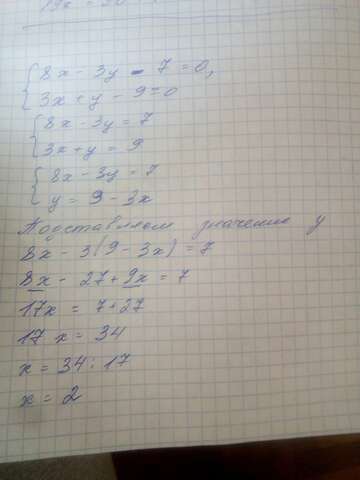 8x - 3y - 7 = 0,
3x + y - 9 = 0
8x - 3y = 7
3x + y = 9
8x - 3y = 7
y = 9 - 3x
Подставляем значение y
8x - 3(9 - 3x) = 7
8x - 27 + 9x = 7
17x = 7 + 27
17 x = 34
x = 34 : 17
x = 2